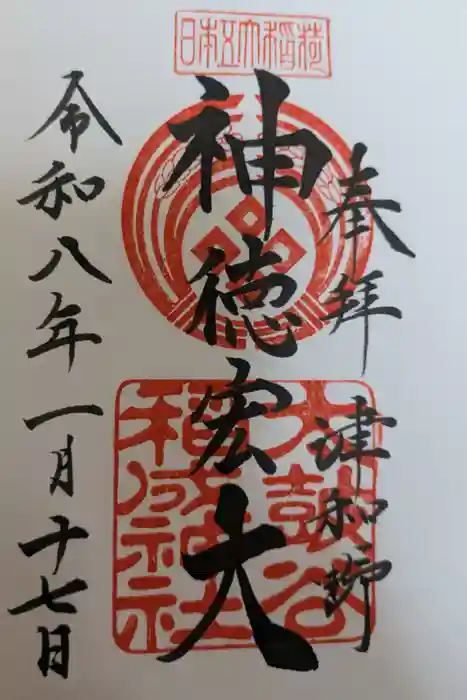 日本五大稲荷
奉拝 津和野
神徳宏大
太鼓谷
稲成神社
令和八年一月十七日